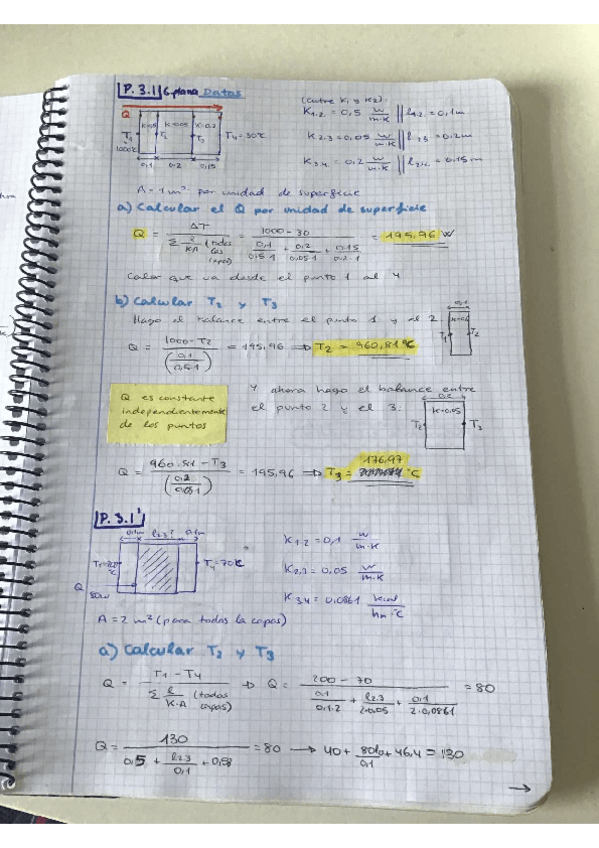 P. 3.1 G. plana Datos
(entre K1 y K2)
K1-2 = 0,5 W/m·K || l1.2 = 0,1m
K2.3 = 0,05 W/m·K || l2.3 = 0,2m
K3.4 = 0,2 W/m·K || = 0,15m
Q
K=0,5 K=0.05 K=0.2
T1 T2 T3 T4=30℃
1000℃
0,1 0,2 0,15
A = 1 m² por unidad de superficie
a) Calcular el Q por unidad de superficie
Q = ΔT / Σ l/KA (todas las capas) = 1000-30 / 0,1/0,5·1 + 0,2/0,05·1 + 0,15/0,2·1 = 195,96 W
Calor que va desde el punto 1 al 4
b) Calcular T2 y T3
Hago el balance entre el punto 1 y el 2.
0,1
T1 T2
Q = 1000-T2 / (0,1/0,5·1) = 195,96 ⇒ T2 = 960,81 ℃
Q es constante
independientemente
de los puntos
Y ahora hago el balance entre
el punto 2 y el 3.
0,2
K=0.05
T2 T3
Q = 960.81 - T3 / (0,2/0,05·1) = 195,96 ⇒ T3 = 176,97 ℃
P. 3.1'
0,1m l2.3? 0.1m
T1=200 ℃ T4=70℃
Q
80W
K1-2 = 0,1 W/m·K
K2.3 = 0,05 W/m·K
K3.4 = 0,0861 kcal/hm℃
A = 2 m² (para todas la capas)
a) Calcular T2 y T3
Q = T1 - T4 / Σ l/K·A (todas capas) ⇒ Q = 200 - 70 / 0,1/0,1·2 + l2.3/2·0,05 + 0,1/2·0,0861 = 80
Q = 130 / 0,5 + l2.3/0,1 + 0,58 = 80 → 40 + /0,1 + 46,4 = 130
→